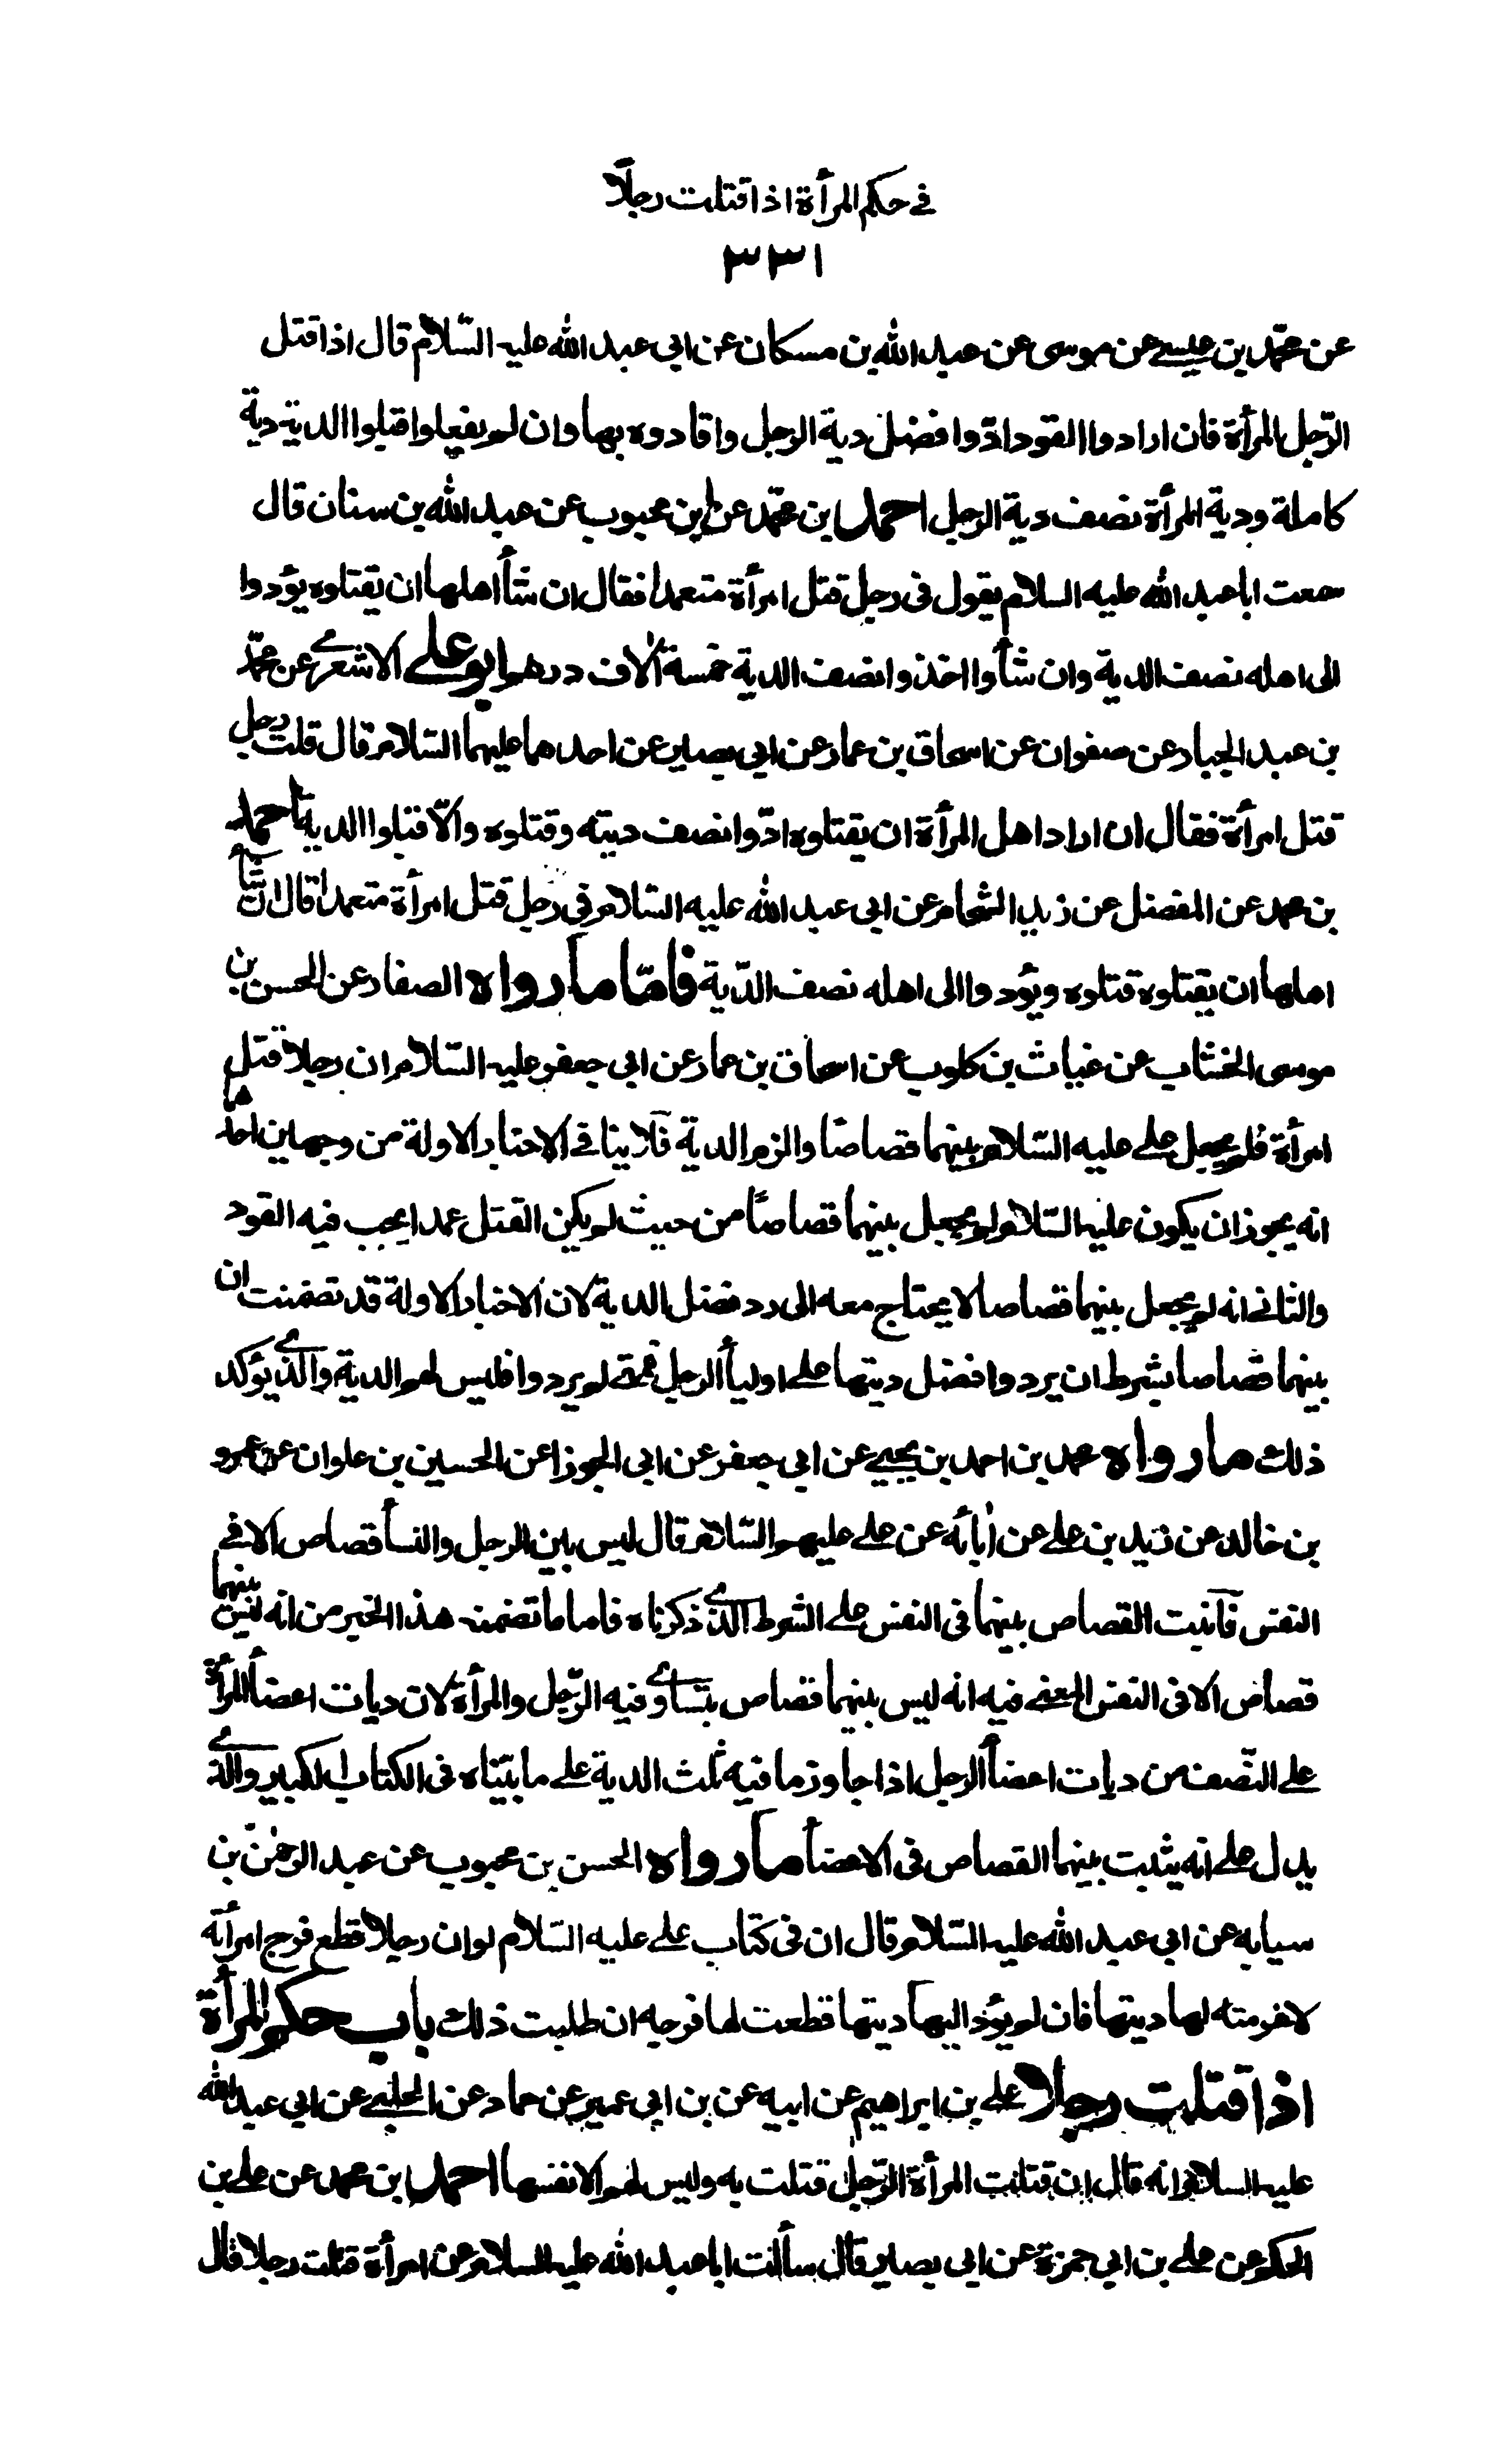 في حكم المرأة اذا قتلت رجلًا
٣٣١
عن محمّد بن عيسى عن موسى عن عبد الله بن مسكان عن ابي عبد الله عليه السّلام قال اذا قتل
الرّجل المرأة فان ارادوا القود ادّوا فضل دية الرجل واقادوه بها وان لم يفعلوا قبلوا الدية دية
كاملة ودية المرأة نصف دية الرجل احمد بن محمّد عن ابن محبوب عن عبد الله بن سنان قال
سمعت ابا عبد الله عليه السلام يقول في رجل قتل امرأة متعمدا فقال ان شأ اهلها ان يقتلوه يؤدوا
الى اهله نصف الدية وان شأوا اخذوا نصف الدية خمسة آلاف درهم ابو علي الاشعري عن محمّد
بن عبد الجبار عن صفوان عن اسحاق بن عمار عن ابي بصير عن احدهما عليهما السّلام قال قلت رجل
قتل امرأة فقال ان اراد اهل المرأة ان يقتلوه ادّوا نصف ديته وقتلوه والّا قبلوا الدية احمد
بن محمد عن المفضل عن زيد الشحام عن ابي عبد الله عليه السّلام في رجل قتل امرأة متعمدا قال ان شأ
اهلها ان يقتلوه قتلوه ويؤدوا الى اهله نصف الدّية فامّا ما رواه الصفار عن الحسن بن
موسى الخشاب عن غياث بن كلوب عن اسحاق بن عمار عن ابي جعفر عليه السّلام ان رجلا قتل
امرأة فلم يجعل علي عليه السّلام بينهما قصاصًا والزم الدية فلا ينافي الاخبار الاولة من وجهين احدهما
انه يجوز ان يكون عليه السّلام لم يجعل بينهما قصاصًا من حيث لم يكن القتل عمدا يجب فيه القود
والثاني انه لم يجعل بينهما قصاصا لا يحتاج معه الى رد فضل الدية لان الاخبار الاولة قد تضمنت ان
بينهما قصاصا بشرط ان يردوا فضل ديتها على اوليأ الرجل فمتى لم يردوا فليس لهم الدية والذي يؤكد
ذلك ما رواه محمد بن احمد بن يحيى عن ابي جعفر عن ابي الجوزا عن الحسين بن علوان عن عمرو
بن خالد عن زيد بن علي عن آبائه عن علي عليهم السّلام قال ليس بين الرجل والنسأ قصاص الا في
النفس فاثبت القصاص بينهما في النفس على الشرط الذي ذكرناه فاما ما تضمنه هذا الخبر من انه ليس بينهما
قصاص الا في النفس المعنى فيه انه ليس بينهما قصاص يتساوي فيه الرّجل والمرأة لان ديات اعضأ المرأة
على النّصف من ديات اعضأ الرجل اذا جاوز ما فيه ثلث الدية على ما بيّناه في الكتاب الكبير والذي
يدل على انه يثبت بينهما القصاص في الاعضأ ما رواه الحسن بن محبوب عن عبد الرحمٰن بن
سيابه عن ابي عبد الله عليه السّلام قال ان في كتاب علي عليه السّلام لو ان رجلا قطع فرج امرأته
لاغرمته لها ديتها فان لم يؤد اليها ديتها قطعت لها فرجه ان طلبت ذلك باب حكم المرأة
اذا قتلت رجلا علي بن ابراهيم عن ابيه عن بن ابي عمير عن حماد عن الحلبي عن ابي عبد الله
عليه السلام انه قال ان قتلت المرأة الرّجل قتلت به وليس لهم الا نفسها احمد بن محمد عن علي بن
الحكم عن علي بن ابي حمزة عن ابي بصير قال سألت ابا عبد الله عليه السلام عن امرأة قتلت رجلا قال